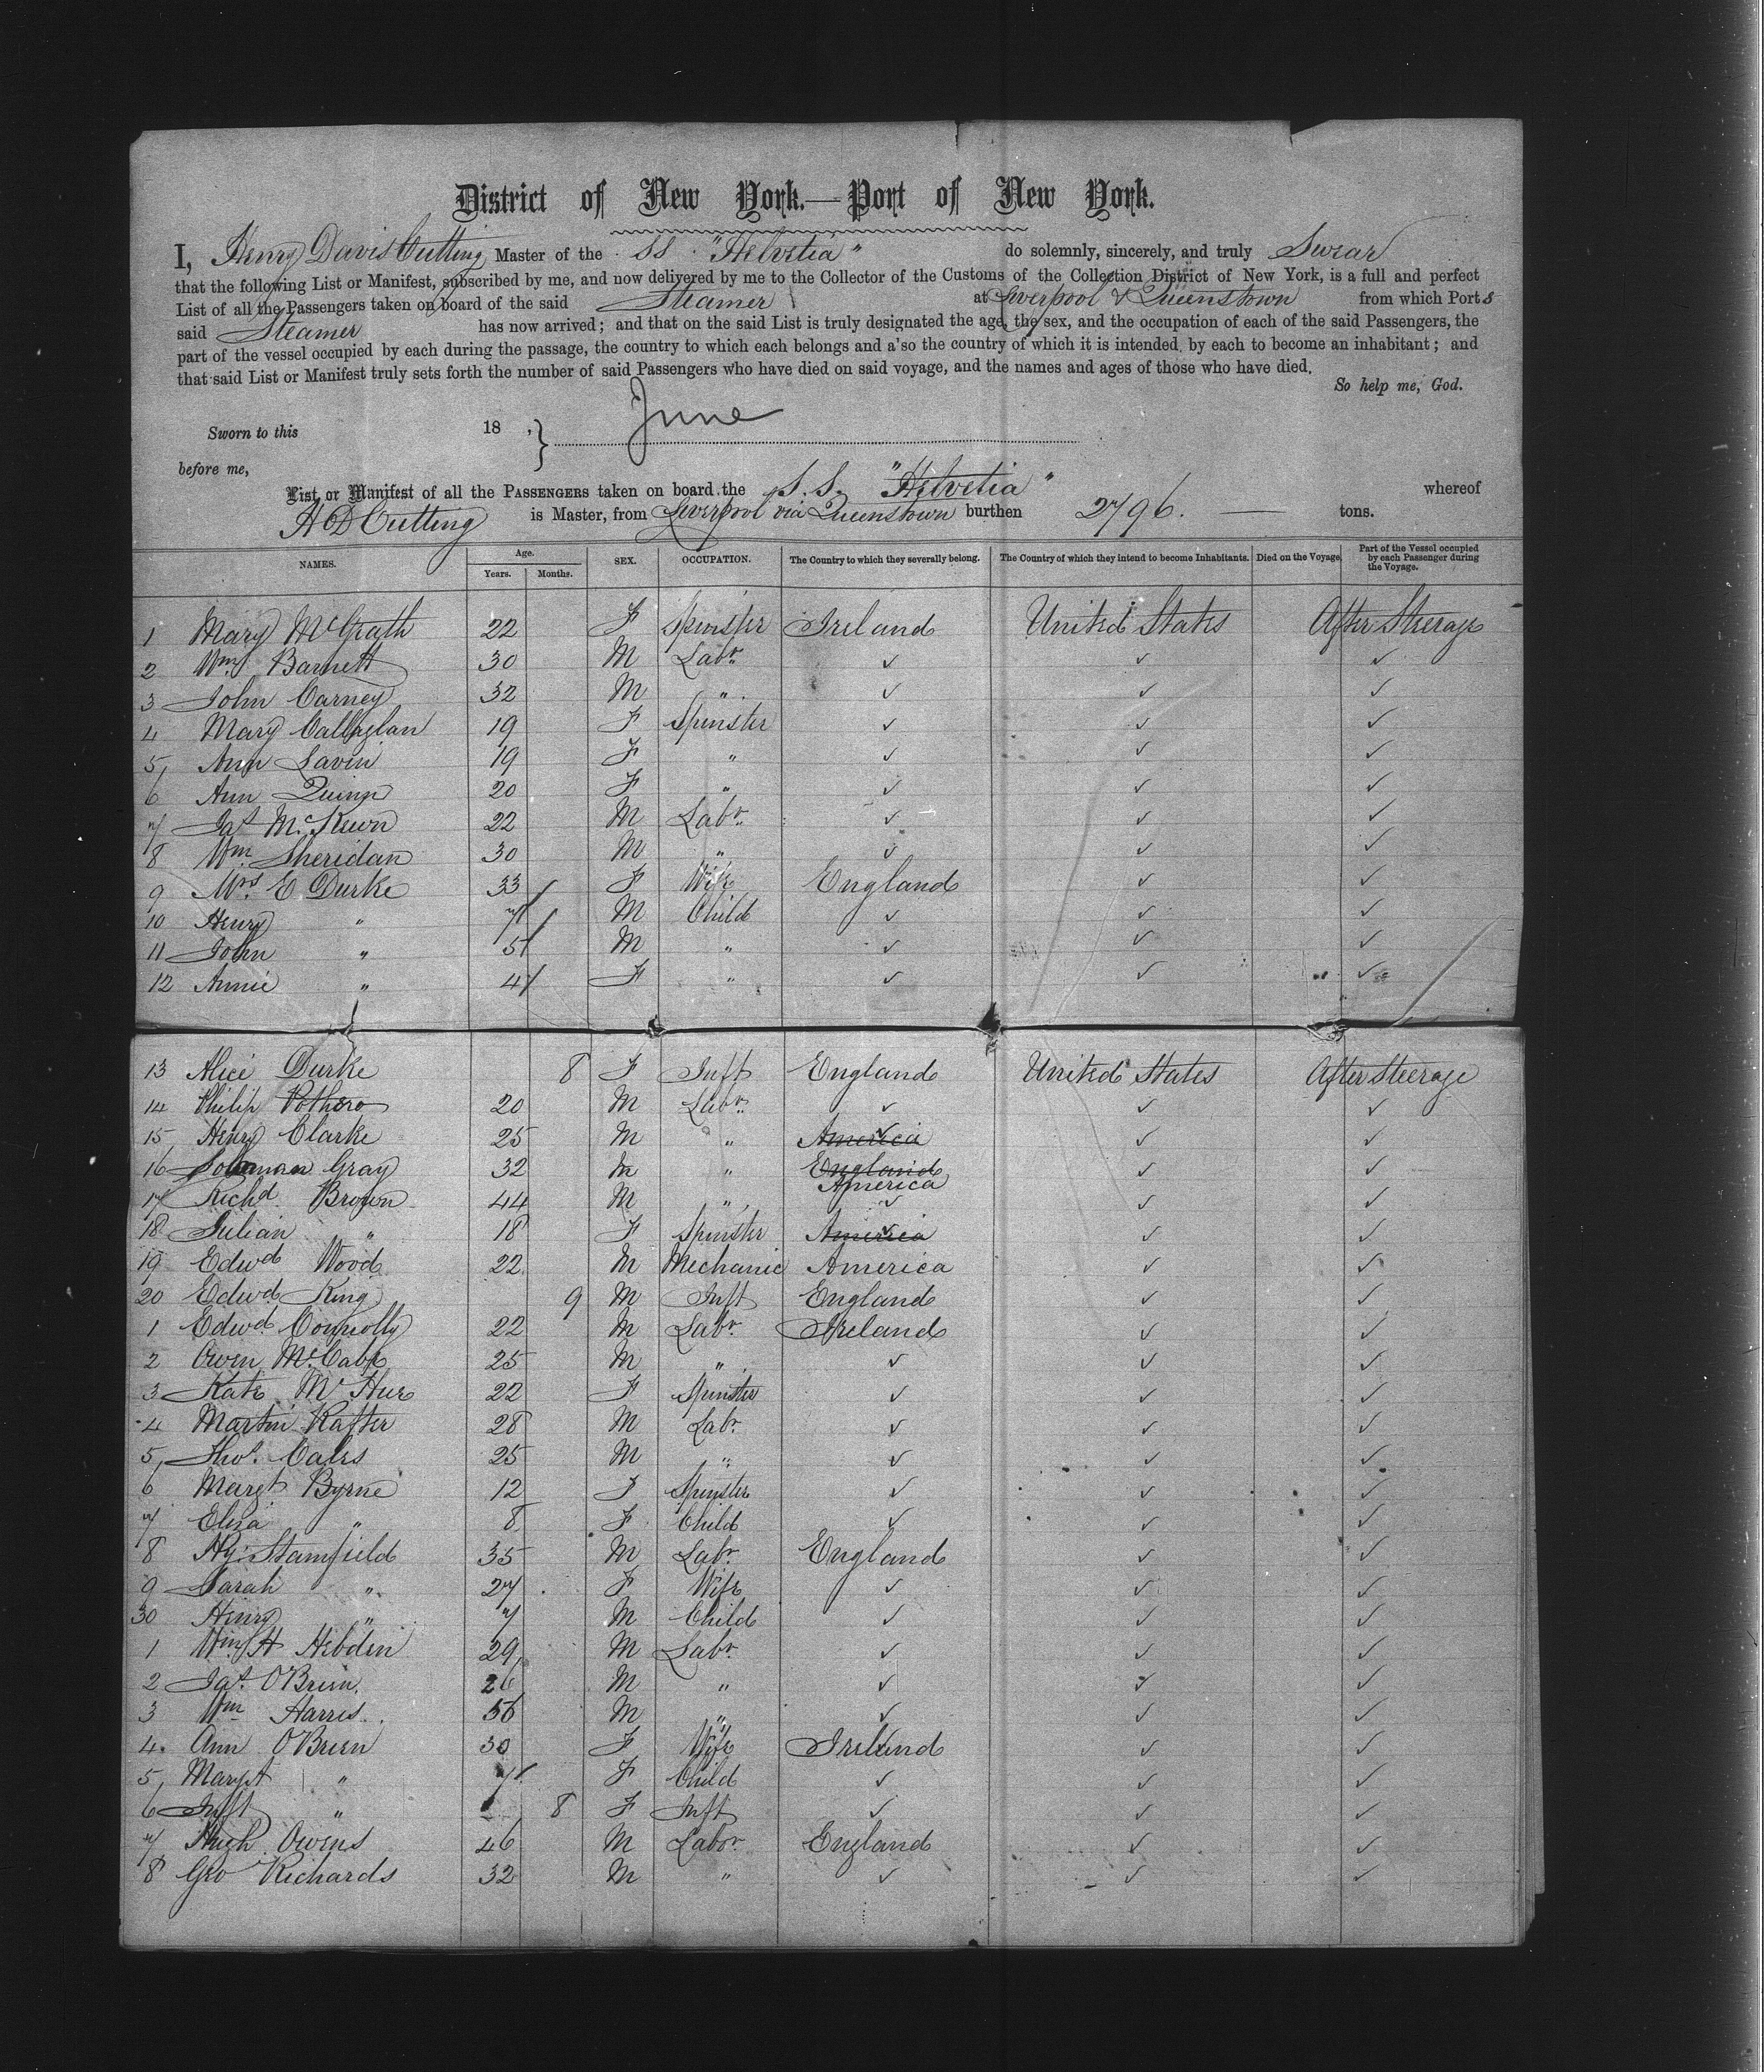 District of New York.—Port of New York.
I, Henry Davis Cutting Master of the SS "Helvetia" do solemnly, sincerely, and truly Swear
that the following List or Manifest, subscribed by me, and now delivered by me to the Collector of the Customs of the Collection District of New York, is a full and perfect
List of all the Passengers taken on board of the said Steamer at Liverpool & Queenstown from which Ports
said Steamer has now arrived; and that on the said List is truly designated the age, the sex, and the occupation of each of the said Passengers, the
part of the vessel occupied by each during the passage, the country to which each belongs and a'so the country of which it is intended by each to become an inhabitant; and
that said List or Manifest truly sets forth the number of said Passengers who have died on said voyage, and the names and ages of those who have died.
So help me, God.
June
Sworn to this 18 ,
before me,
List or Manifest of all the PASSENGERS taken on board the S.S. "Helvetia" whereof
H D Cutting is Master, from Liverpool via Queenstown burthen 2796. — tons.
NAMES. Age. Years. Months. SEX. OCCUPATION. The Country to which they severally belong. The Country of which they intend to become Inhabitants. Died on the Voyage. Part of the Vessel occupied by each Passenger during the Voyage.
1 Mary McGrath 22 F Spinster Ireland United States After Steerage
2 Wm Barnett 30 M Labr ✓ ✓ ✓
3 John Carney 32 M " ✓ ✓ ✓
4 Mary Callaglan 19 F Spinster ✓ ✓ ✓
5 Ann Lavin 19 F " ✓ ✓ ✓
6 Ann Quinn 20 F " ✓ ✓ ✓
7 Jas McKewn 22 M Labr ✓ ✓ ✓
8 Wm Sheridan 30 M " ✓ ✓ ✓
9 Mrs E Durke 33 F Wife England ✓ ✓
10 Henry " 7 M Child ✓ ✓ ✓
11 John " 5 M " ✓ ✓ ✓
12 Annie " 4 F " ✓ ✓ ✓
13 Alice Durke 8 F Inft England United States After Steerage
14 Philip Pothero 20 M Labr ✓ ✓ ✓
15 Henry Clarke 25 M " America ✓ ✓ ✓
16 Soloman Gray 32 M " England America ✓ ✓
17 Richd Brown 44 M " ✓ ✓ ✓
18 Julian " 18 F Spinster America ✓ ✓ ✓
19 Edwd Wood 22 M Mechanic America ✓ ✓
20 Edwd King 9 M Inft England ✓ ✓
1 Edwd Connolly 22 M Labr Ireland ✓ ✓
2 Owen McCabe 25 M " ✓ ✓ ✓
3 Kate McHue 22 F Spinster ✓ ✓ ✓
4 Martin Rafter 28 M Labr ✓ ✓ ✓
5 Thos. Cales 25 M " ✓ ✓ ✓
6 Margt Byrne 12 F Spinster ✓ ✓ ✓
7 Eliza " 8 F Child ✓ ✓ ✓
8 Hy. Stamfield 35 M Labr England ✓ ✓
9 Sarah " 27 F Wife ✓ ✓ ✓
30 Henry " 7 M Child ✓ ✓ ✓
1 Wm H Hibden 29 M Labr ✓ ✓ ✓
2 Jas. O'Brien 26 M " ✓ ✓ ✓
3 Wm Harris 56 M " ✓ ✓ ✓
4 Ann O'Brien 30 F Wife Ireland ✓ ✓
5 Margt " 7 F Child ✓ ✓ ✓
6 Inft " 8 F Inft ✓ ✓ ✓
7 Hugh Owens 46 M Labor England ✓ ✓
8 Geo Richards 32 M " ✓ ✓ ✓